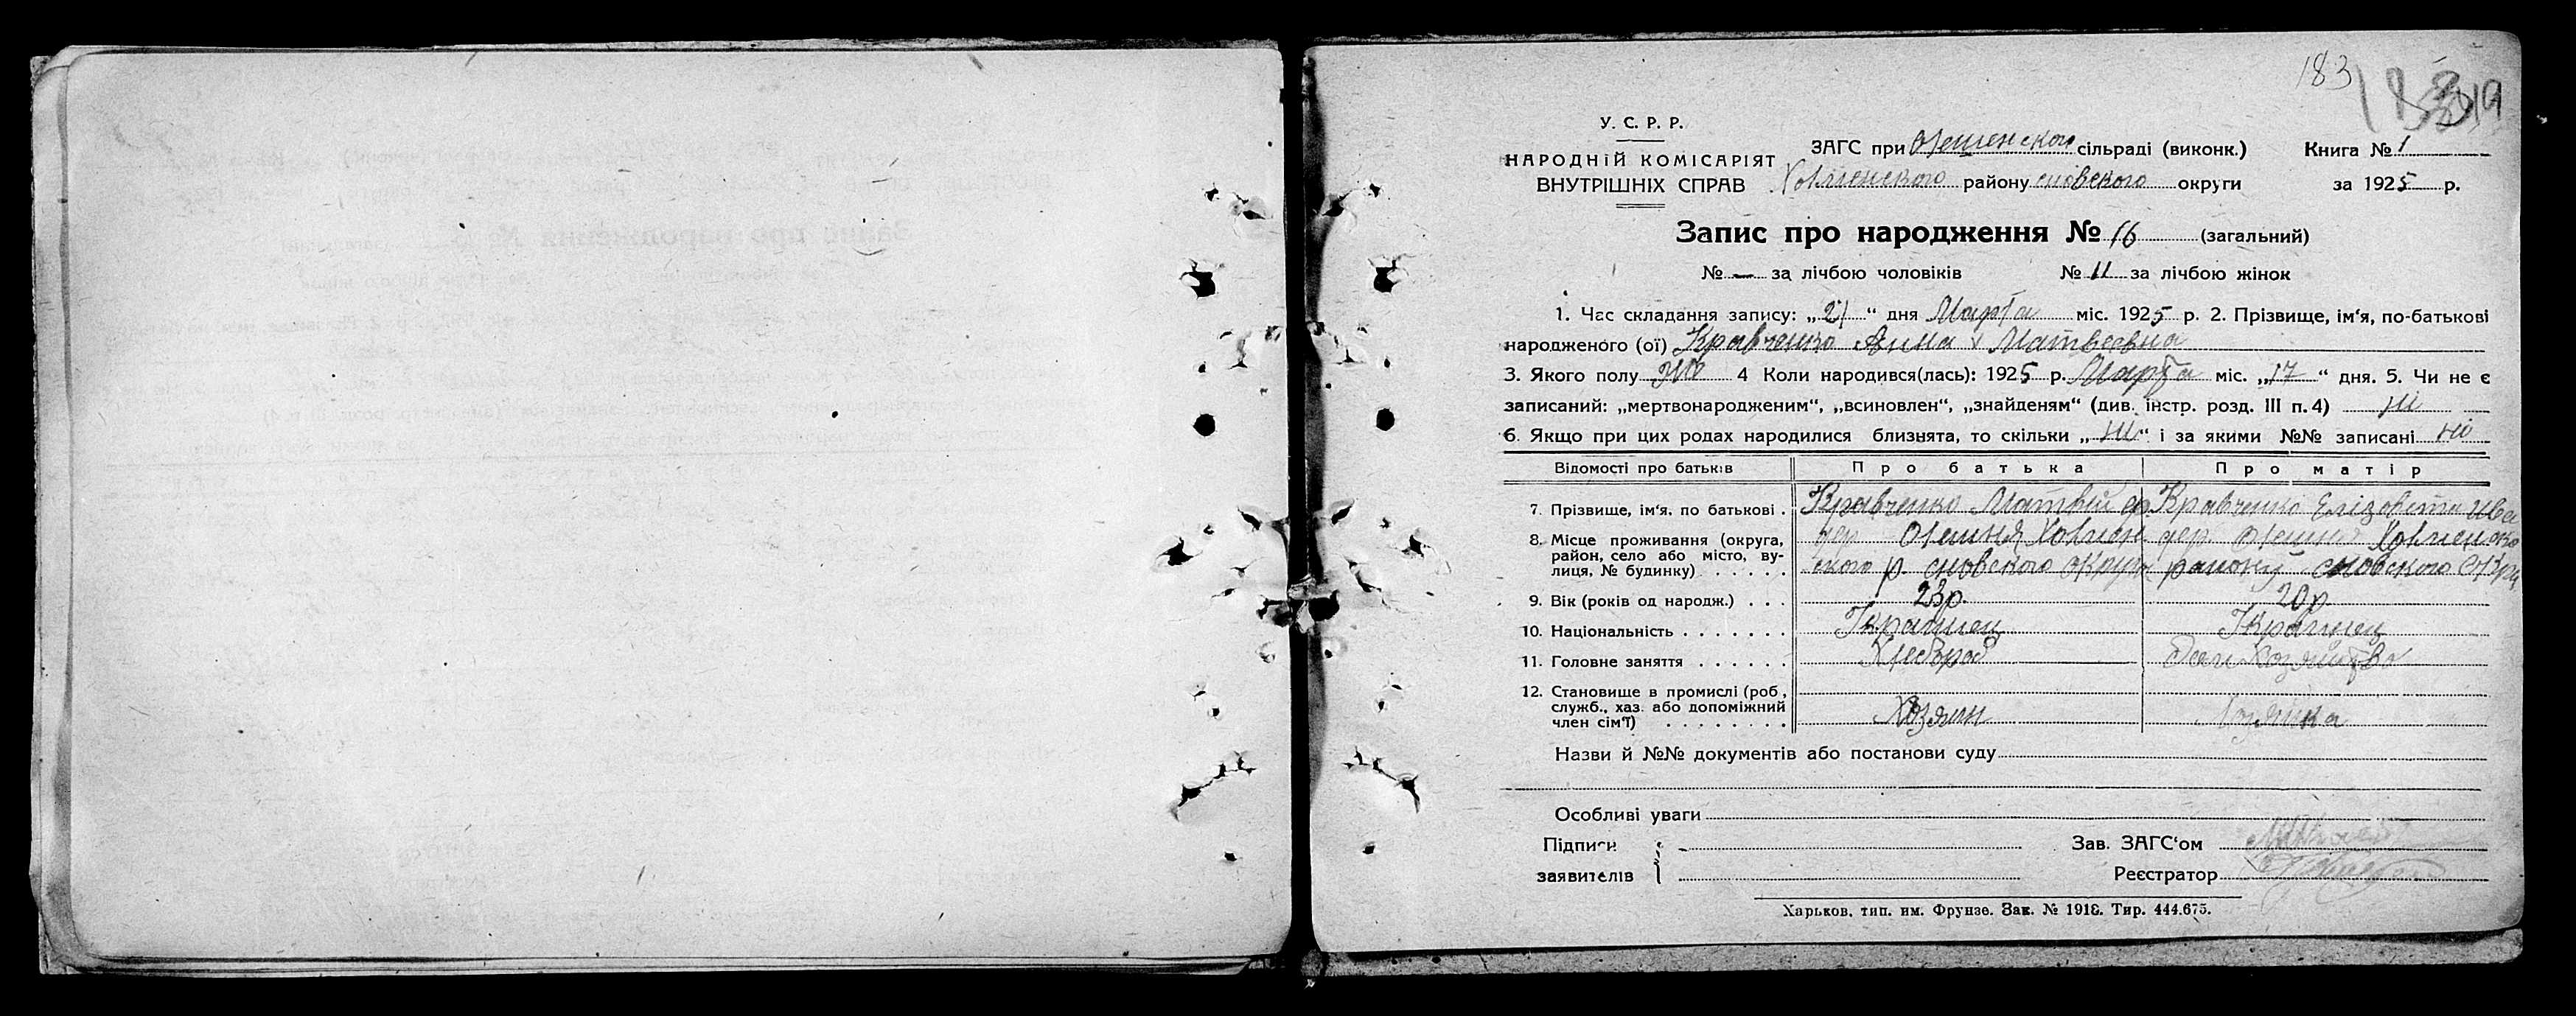 183
19
У. С. Р. Р.
НАРОДНІЙ КОМІСАРІЯТ
ВНУТРІШНІХ СПРАВ
ЗАГС при сільраді (виконк.)
району сновского округи
Книга № 1
за 1925 р.
Запис про народження № 16 (загальний)
№ — за лічбою чоловіків № 11 за лічбою жінок
1. Час складання запису: „21“ дня Марта міс. 1925 р. 2. Прізвище, ім‘я, по-батькові
народженого (ої) Кравченко Анна Матвеевна
3. Якого полу 4 Коли народився(лась): 1925 р. Марта міс. „17“ дня. 5. Чи не є
записаний: „мертвонародженим“, „всиновлен“, „знайденям“ (див. інстр. розд. III п. 4) ні
6. Якщо при цих родах народилися близнята, то скільки „ні“ і за якими №№ записані ні
Відомості про батьків Про батька Про матір
7. Прізвище, ім‘я, по батькові . Кравченко Матвій Кравченко Елізовета Ива
8. Місце проживання (округа,
район, село або місто, ву-
лиця, № будинку) . . . . . ского р. сновского округи району сновского Окру
9. Вік (років од народж.) . . . 23р 20р
10. Національність . . . . . . .
11. Головне заняття . . . . . . Хлебороб
12. Становище в промислі (роб,
служб., хаз. або допоміжний
член сім‘ї) . . . . . . . . Хозяин Хозяйка
Назви й №№ документів або постанови суду
Особливі уваги
Підписи
заявителів
Зав. ЗАГС‘ом
Реєстратор
Харьков, тип. им. Фрунзе. Зак. № 1918. Тир. 444.675.